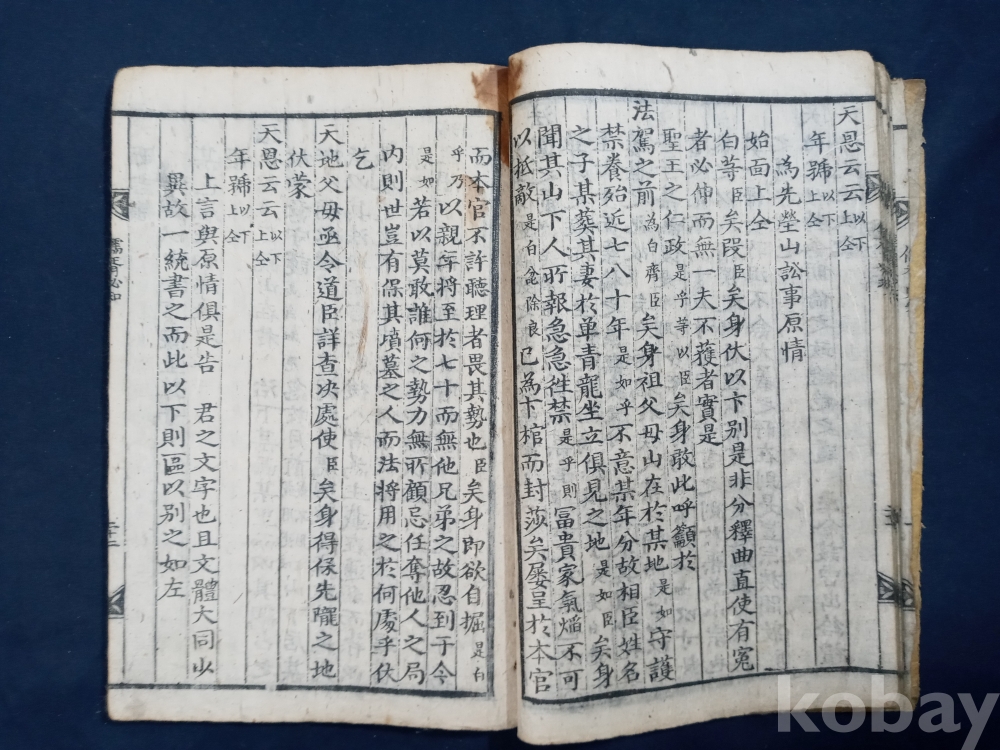 天恩云云以下上仝
年號以下上仝
為先塋山訟事原情
始面上仝
白等臣矣段臣矣身伏以卞別是非分釋曲直使有寃
者必伸而無一夫不獲者實是
聖王之仁政是乎等以臣矣身敢此呼籲於
法駕之前為白齊臣矣身祖父母山在於某地是如守護
禁養殆近七八十年是如乎不意某年分故相臣姓名
之子某葬其妻於单青龍坐立俱見之地是如臣矣身
聞其山下人所報急急徃禁是乎則冨貴家氣焰不可
以抵敵是白乭除良已為卞棺而封莎矣屡呈於本官
而本官不許聽理者畏其勢也臣矣身即欲自掘是白
乎乃以親年将至於七十而無他兄弟之故忍到于今
是如若以莫敢誰何之勢力無所顧忌任奪他人之局
内則世豈有保其墳墓之人而法将用之於何處乎伏
乞
天地父母亟令道臣詳查决處使臣矣身得保先隴之地
伏蒙
天恩云云以下上仝
年號以下上仝
上言與原情俱是告 君之文字也且文體大同少
異故一統書之而此以下則區以別之如左
儒胥必知
kobay